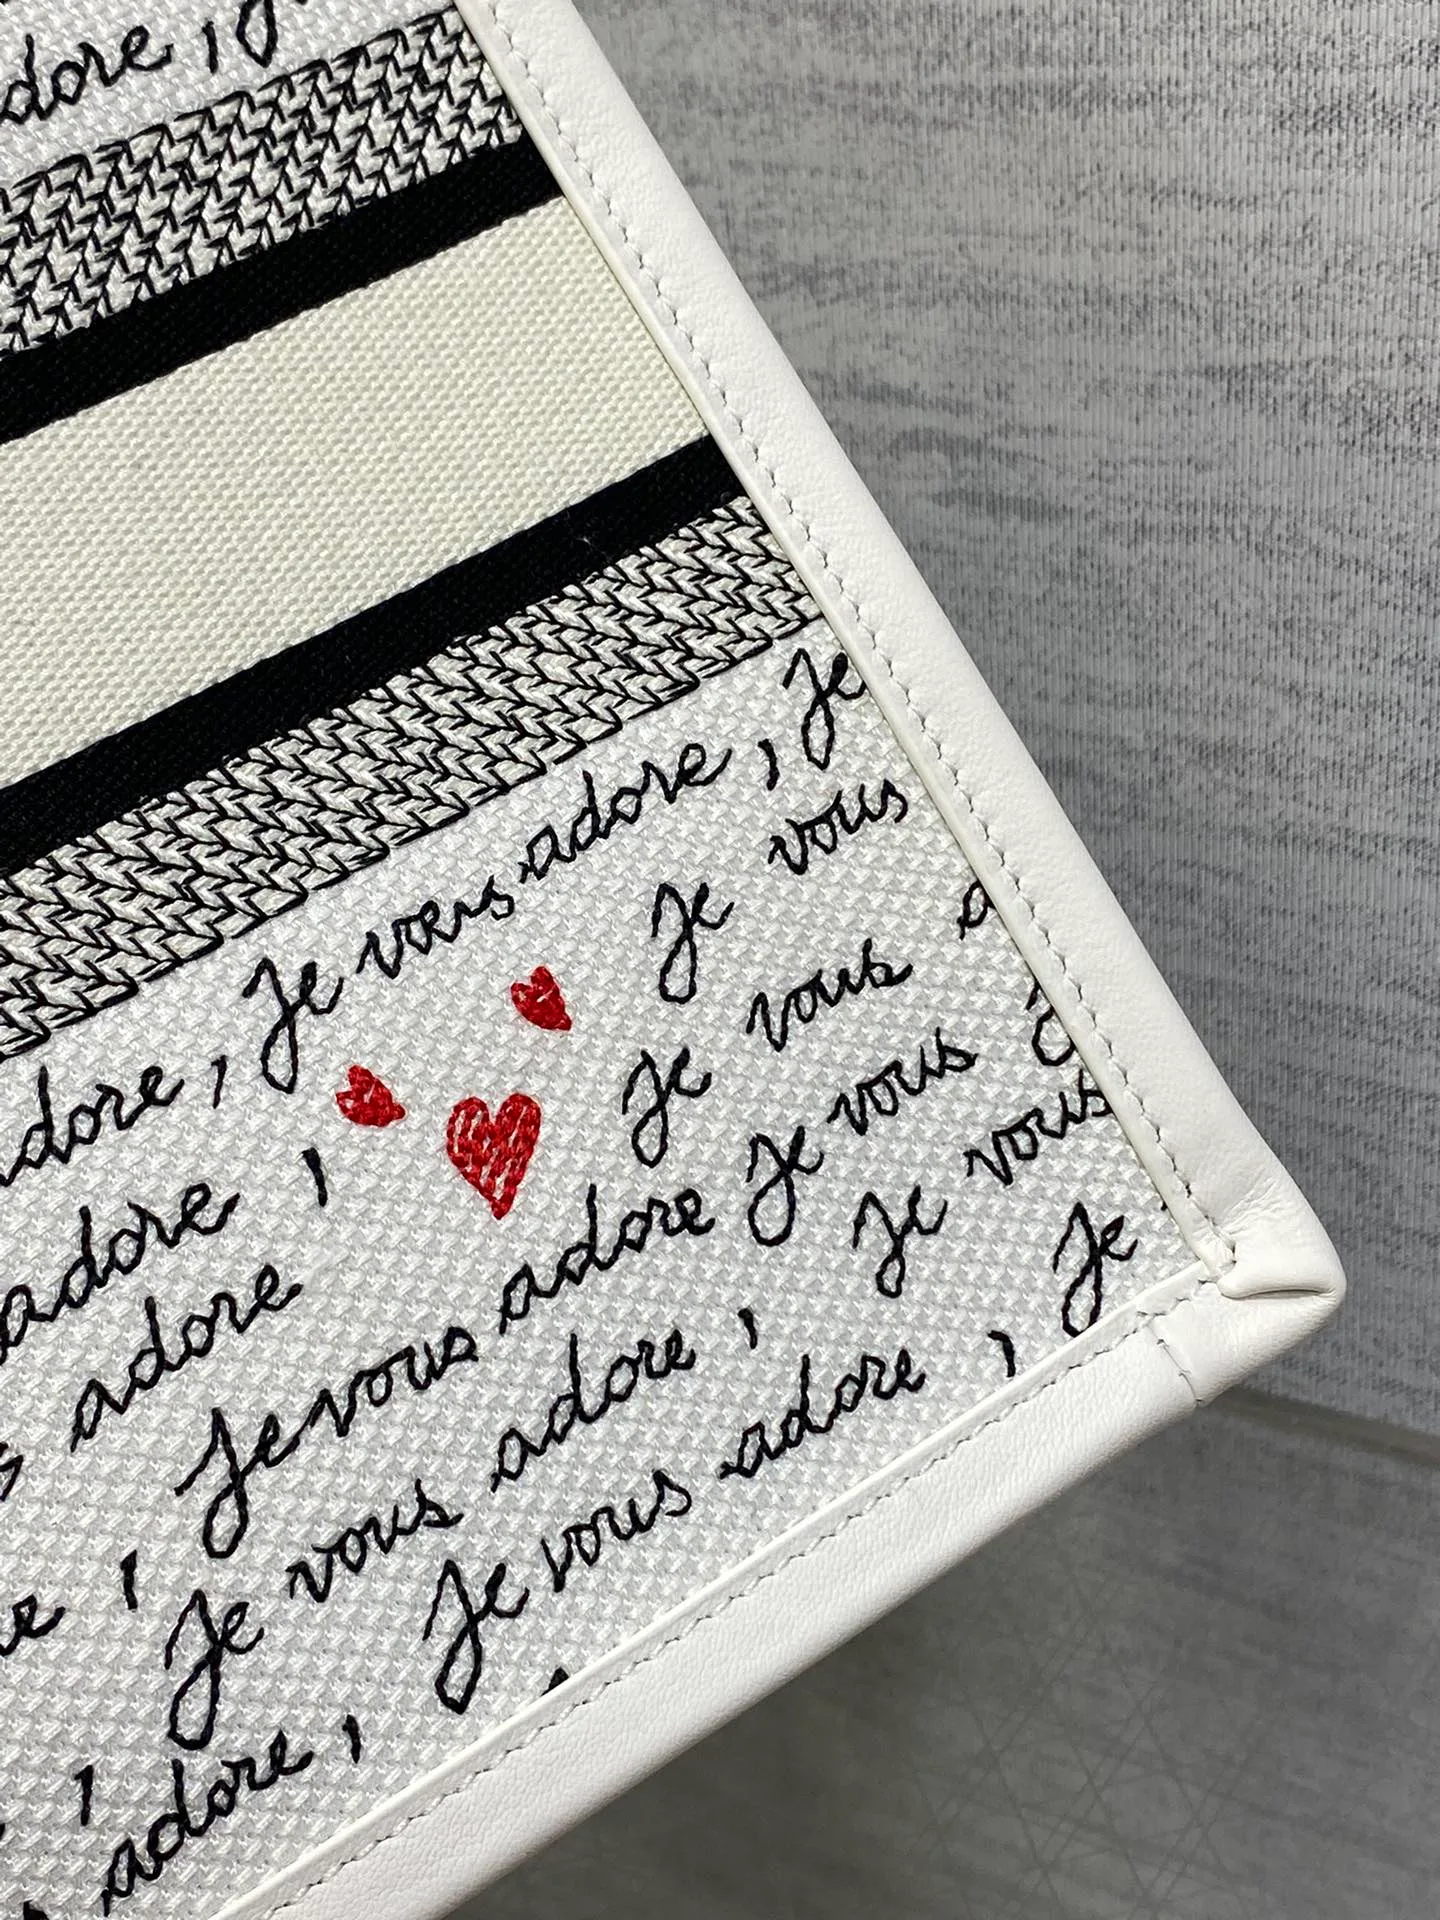 adore, Je
adore, Je vous adore, Je
adore, Je vous
adore Je vous a
Je vous adore Je vous J
Je vous adore, Je vous
Je vous adore, Je
adore,